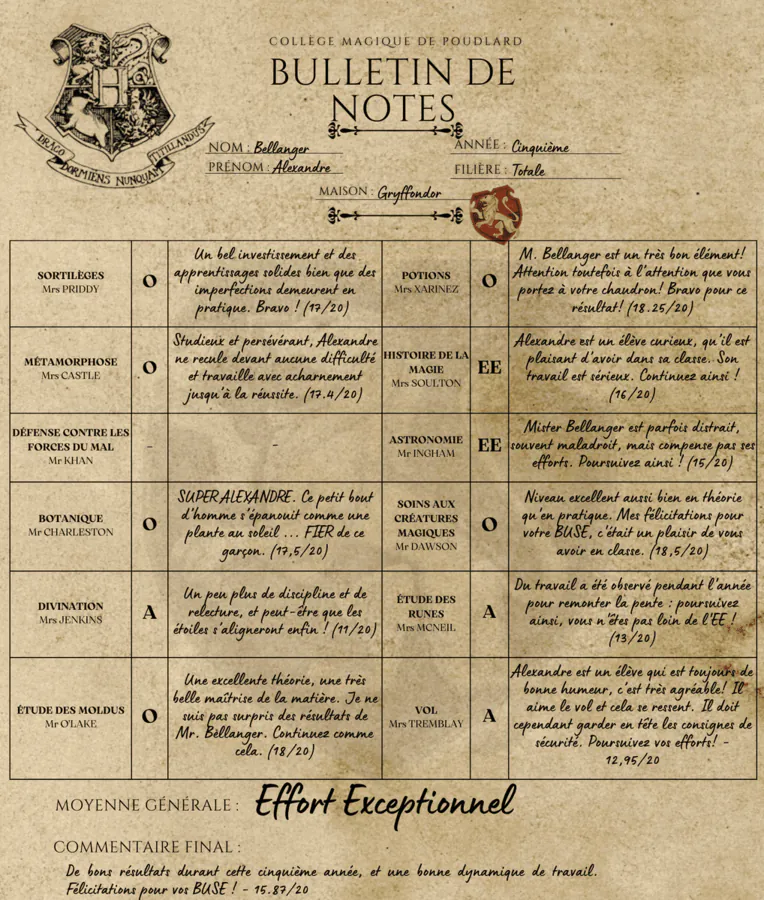 COLLÈGE MAGIQUE DE POUDLARD
BULLETIN DE
NOTES
DRACO DORMIENS NUNQUAM TITILLANDUS
NOM : Bellanger
ANNÉE : Cinquième
PRÉNOM : Alexandre
FILIÈRE : Totale
MAISON : Gryffondor
SORTILÈGES
Mrs PRIDDY
O
Un bel investissement et des
apprentissages solides bien que des
imperfections demeurent en
pratique. Bravo ! (17/20)
POTIONS
Mrs XARINEZ
O
M. Bellanger est un très bon élément!
Attention toutefois à l'attention que vous
portez à votre chaudron! Bravo pour ce
résultat! (18.25/20)
MÉTAMORPHOSE
Mrs CASTLE
O
Studieux et persévérant, Alexandre
ne recule devant aucune difficulté
et travaille avec acharnement
jusqu'à la réussite. (17.4/20)
HISTOIRE DE LA
MAGIE
Mrs SOULTON
EE
Alexandre est un élève curieux, qu'il est
plaisant d'avoir dans sa classe. Son
travail est sérieux. Continuez ainsi !
(16/20)
DÉFENSE CONTRE LES
FORCES DU MAL
Mr KHAN
-
-
ASTRONOMIE
Mr INGHAM
EE
Mister Bellanger est parfois distrait,
souvent maladroit, mais compense pas ses
efforts. Poursuivez ainsi ! (15/20)
BOTANIQUE
Mr CHARLESTON
O
SUPER ALEXANDRE. Ce petit bout
d'homme s'épanouit comme une
plante au soleil ... FIER de ce
garçon. (17,5/20)
SOINS AUX
CRÉATURES
MAGIQUES
Mr DAWSON
O
Niveau excellent aussi bien en théorie
qu'en pratique. Mes félicitations pour
votre BUSE, c'était un plaisir de vous
avoir en classe. (18,5/20)
DIVINATION
Mrs JENKINS
A
Un peu plus de discipline et de
relecture, et peut-être que les
étoiles s'aligneront enfin ! (11/20)
ÉTUDE DES
RUNES
Mrs MCNEIL
A
Du travail a été observé pendant l'année
pour remonter la pente : poursuivez
ainsi, vous n'êtes pas loin de l'EE !
(13/20)
ÉTUDE DES MOLDUS
Mr O'LAKE
O
Une excellente théorie, une très
belle maîtrise de la matière. Je ne
suis pas surpris des résultats de
Mr. Bellanger. Continuez comme
cela. (18/20)
VOL
Mrs TREMBLAY
A
Alexandre est un élève qui est toujours de
bonne humeur, c'est très agréable! Il
aime le vol et cela se ressent. Il doit
cependant garder en tête les consignes de
sécurité. Poursuivez vos efforts! -
12,95/20
MOYENNE GÉNÉRALE : Effort Exceptionnel
COMMENTAIRE FINAL :
De bons résultats durant cette cinquième année, et une bonne dynamique de travail.
Félicitations pour vos BUSE ! - 15.87/20